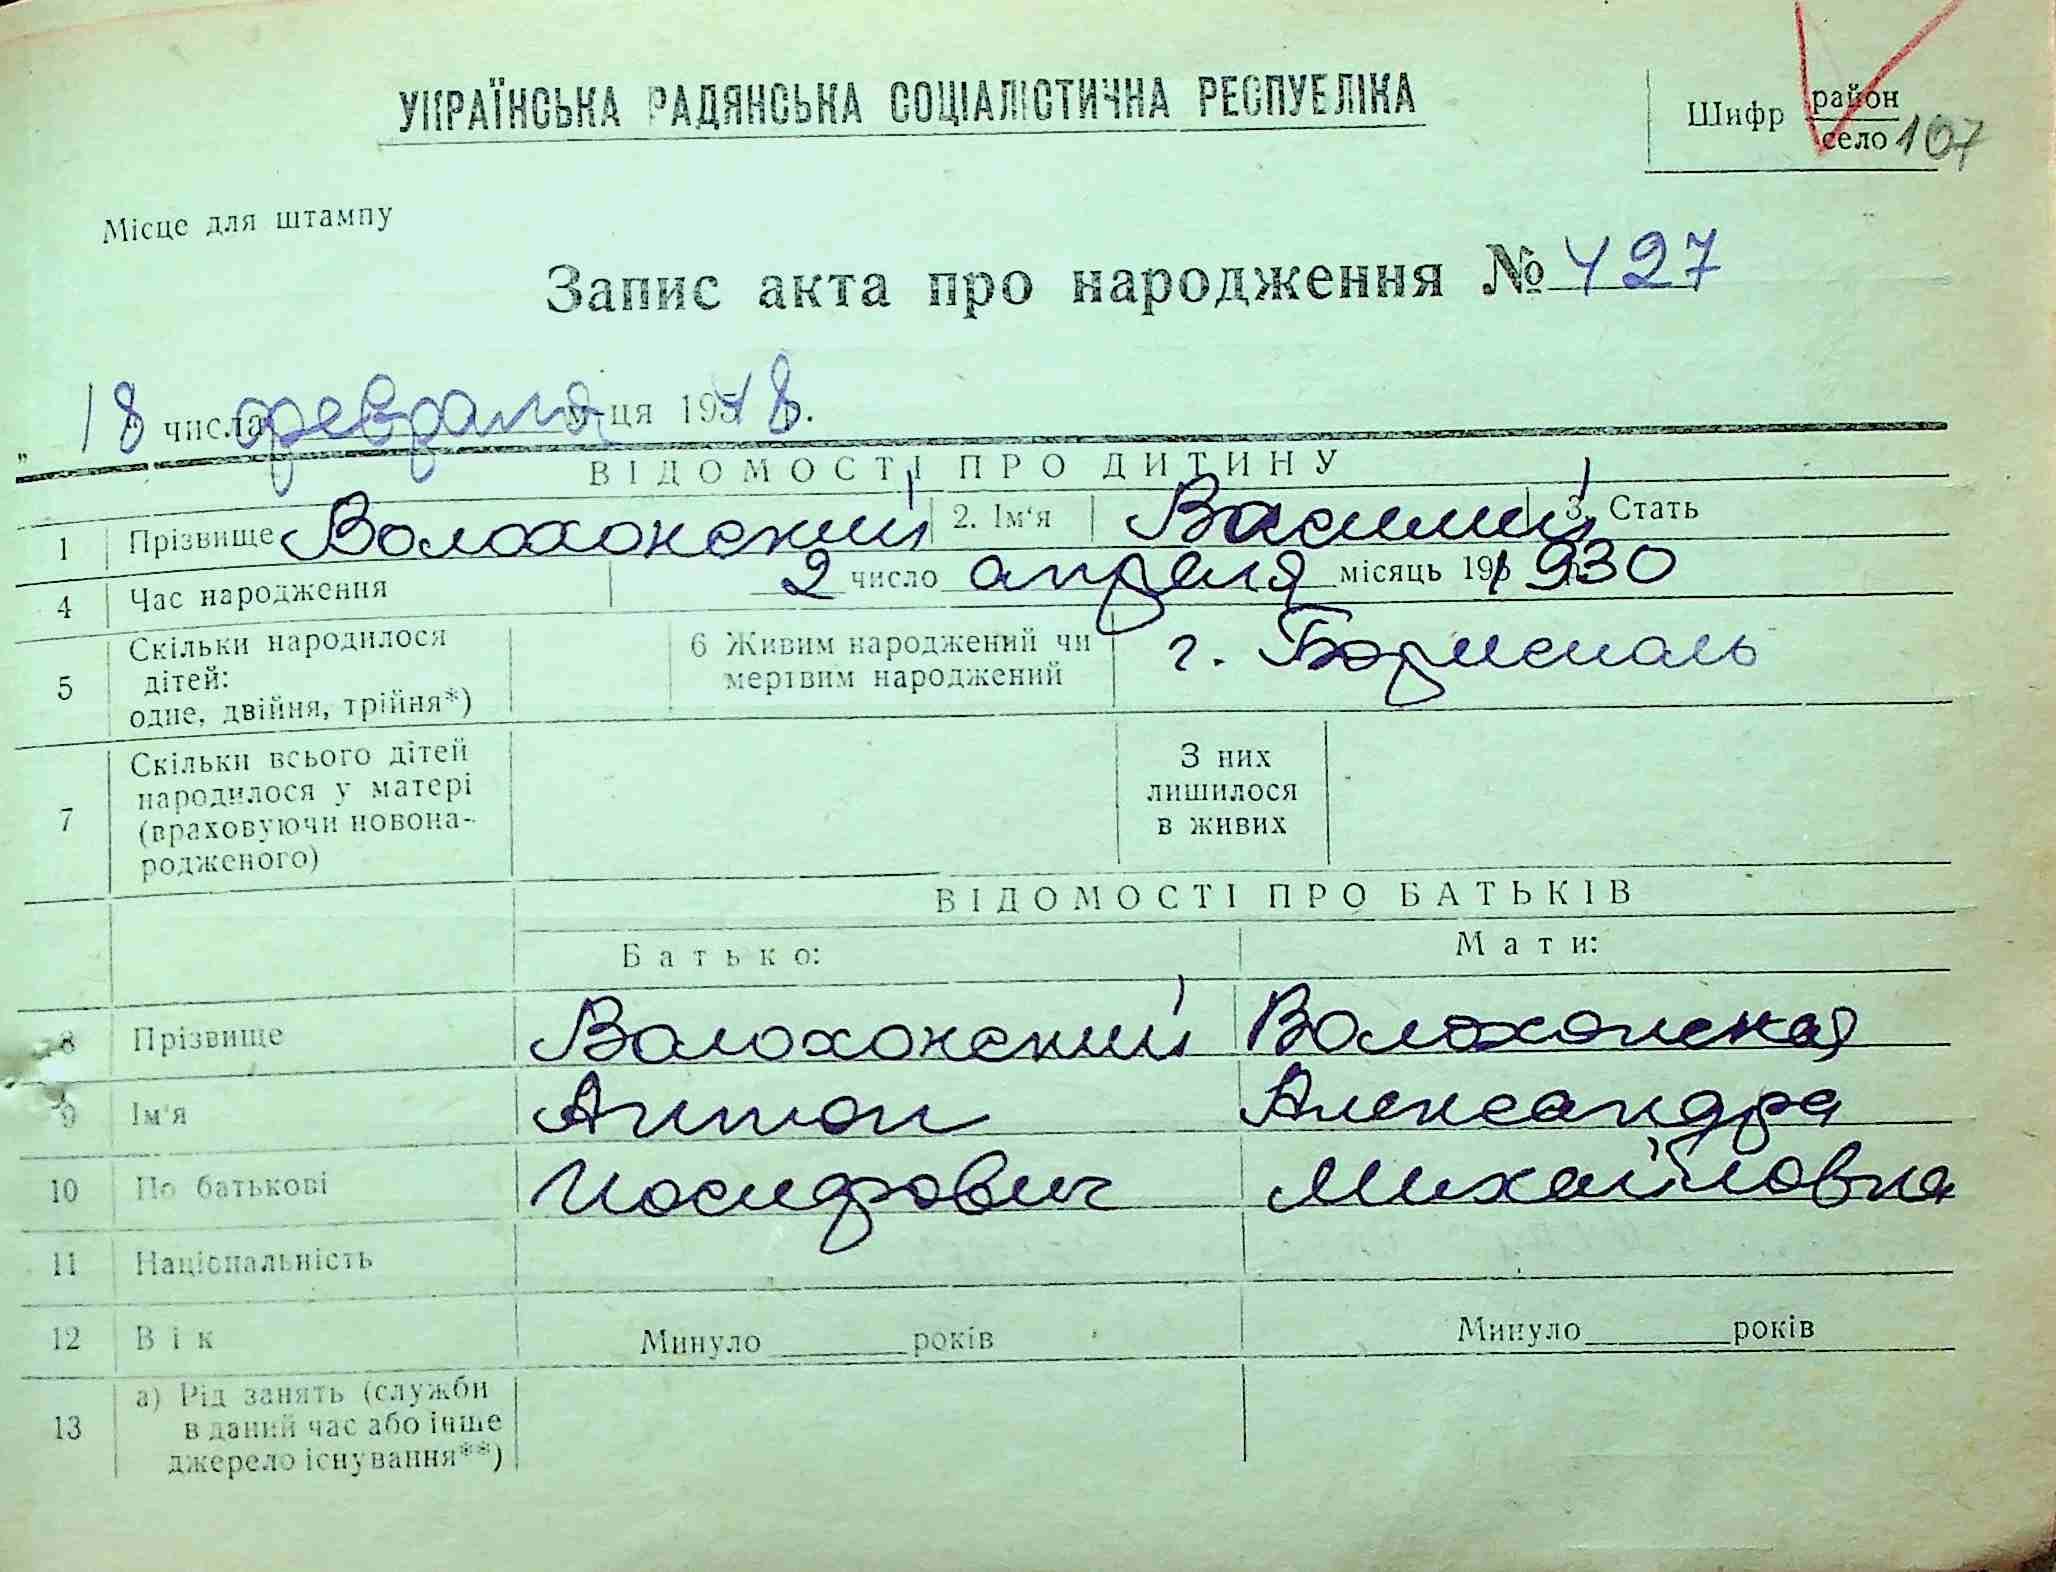 УКРАЇНСЬКА РАДЯНСЬКА СОЦІАЛІСТИЧНА РЕСПУБЛІКА
Шифр район
село 107
Місце для штампу
Запис акта про народження № 427
„ 18 числа февраля м-ця 195 48 .
ВІДОМОСТІ ПРО ДИТИНУ
1 Прізвище Волохонский 2. Ім'я Василий 3. Стать
4 Час народження 2 число апреля місяць 195 1930
5 Скільки народилося
дітей:
одне, двійня, трійня*)
6 Живим народжений чи
мертвим народжений
г. Борисполь
7 Скільки всього дітей
народилося у матері
(враховуючи новона-
родженого)
З них
лишилося
в живих
ВІДОМОСТІ ПРО БАТЬКІВ
Батько: Мати:
8 Прізвище Волохонский Волохонская
9 Ім'я Антон Александра
10 По батькові Иосифович Михайловна
11 Національність
12 Вік Минуло ______ років Минуло ______ років
13 а) Рід занять (служби
в даний час або інше
джерело існування**)